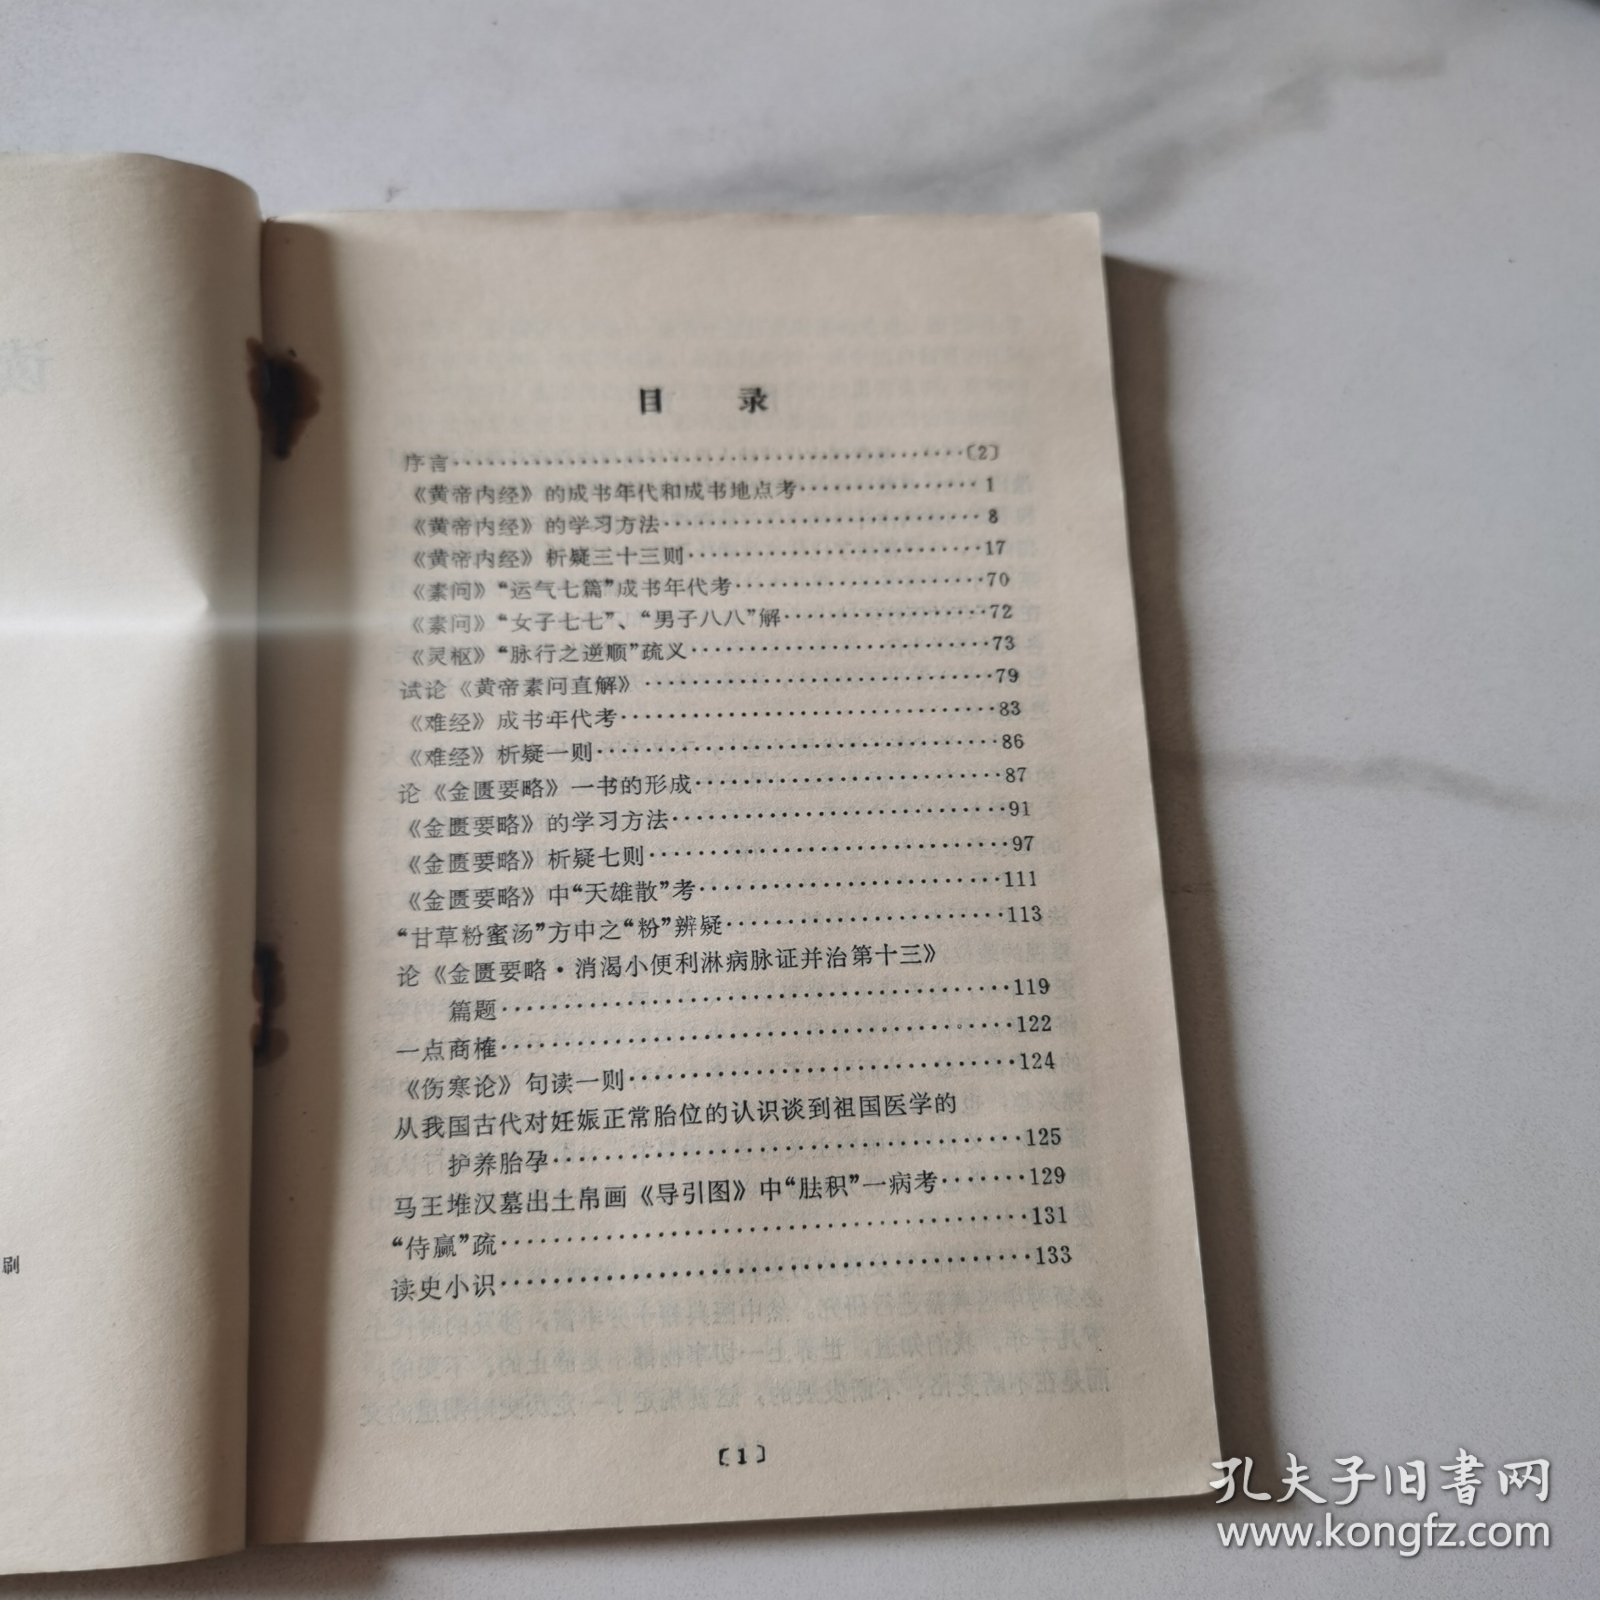 目 录
序言……………………………………〔2〕
《黄帝内经》的成书年代和成书地点考……………1
《黄帝内经》的学习方法……………………8
《黄帝内经》析疑三十三则…………………17
《素问》“运气七篇”成书年代考………………70
《素问》“女子七七”、“男子八八”解……………72
《灵枢》“脉行之逆顺”疏义…………………73
试论《黄帝素问直解》……………………79
《难经》成书年代考………………………83
《难经》析疑一则…………………………86
论《金匮要略》一书的形成…………………87
《金匮要略》的学习方法……………………91
《金匮要略》析疑七则……………………97
《金匮要略》中“天雄散”考…………………111
“甘草粉蜜汤”方中之“粉”辨疑………………113
论《金匮要略·消渴小便利淋病脉证并治第十三》
篇题………………………………119
一点商榷………………………………122
《伤寒论》句读一则………………………124
从我国古代对妊娠正常胎位的认识谈到祖国医学的
护养胎孕……………………………125
马王堆汉墓出土帛画《导引图》中“胠积”一病考……129
“侍羸”疏………………………………131
读史小识………………………………133
〔1〕
刷
孔夫子旧书网
www.kongfz.com